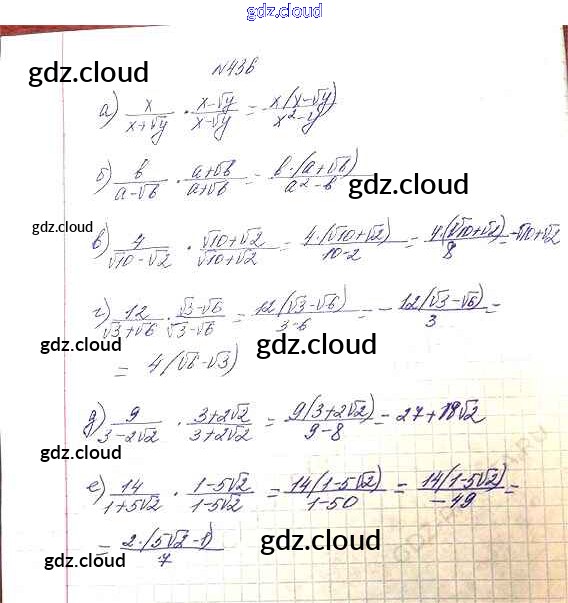 gdz.cloud
№436
gdz.cloud gdz.cloud
а) x/(x+√y) · (x-√y)/(x-√y) = x(x-√y)/(x²-y)
б) b/(a-√b) · (a+√b)/(a+√b) = b·(a+√b)/(a²-b)
gdz.cloud
gdz.cloud
в) 4/(√10-√2) · (√10+√2)/(√10+√2) = 4·(√10+√2)/(10-2) = 4·(√10+√2)/8 =
г) 12/(√3+√6) · (√3-√6)/(√3-√6) = 12(√3-√6)/(3-6) = -12(√3-√6)/3 =
gdz.cloud gdz.cloud
= 4(√6-√3)
д) 9/(3-2√2) · (3+2√2)/(3+2√2) = 9(3+2√2)/(9-8) = 27+18√2
gdz.cloud
е) 14/(1+5√2) · (1-5√2)/(1-5√2) = 14(1-5√2)/(1-50) = 14(1-5√2)/(-49) =
= 2·(5√2-1)/7
gdz.cloud
gdz.cloud